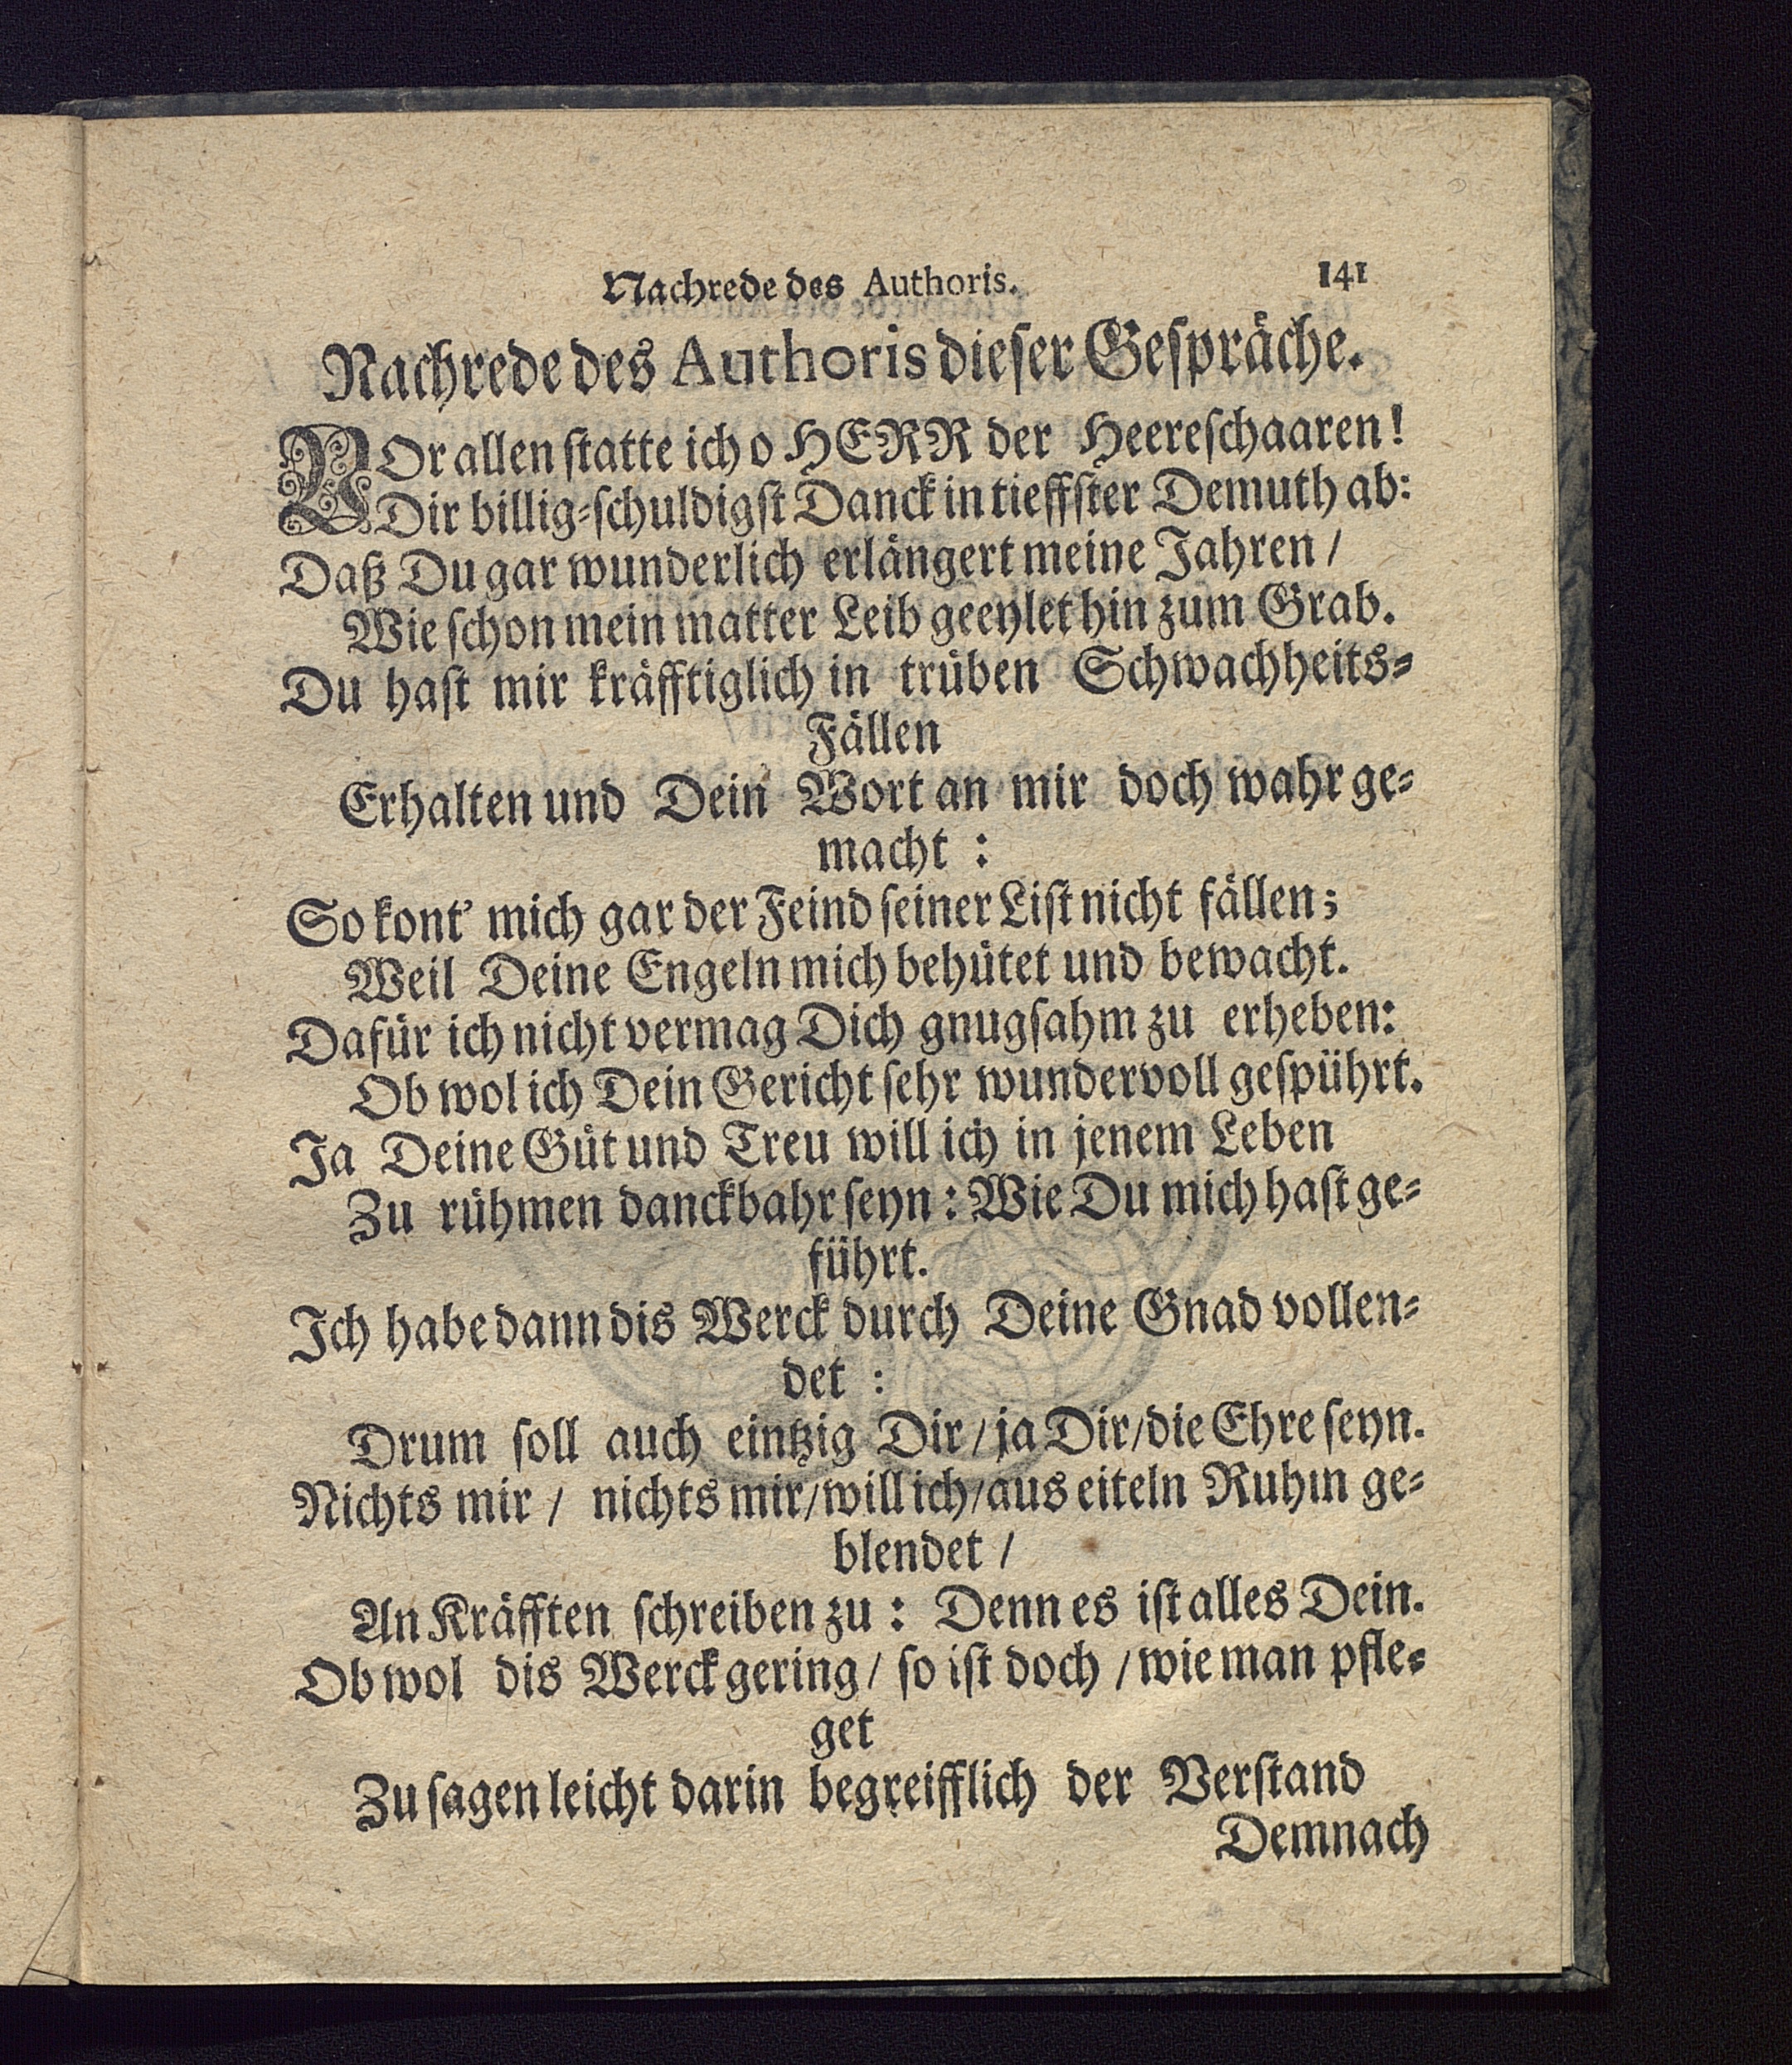 Nachrede des Authoris. 141
Nachrede des Authoris dieser Gespräche.
VOr allen statte ich o HERR der Heereschaaren!
Dir billig-schuldigst Danck in tieffster Demuth ab:
Daß Du gar wunderlich erlängert meine Jahren /
Wie schon mein matter Leib geeylet hin zum Grab.
Du hast mir kräfftiglich in trüben Schwachheits-
Fällen
Erhalten und Dein Wort an mir doch wahr ge-
macht :
So kont' mich gar der Feind seiner List nicht fällen;
Weil Deine Engeln mich behütet und bewacht.
Dafür ich nicht vermag Dich gnugsahm zu erheben:
Ob wol ich Dein Gericht sehr wundervoll gespührt.
Ja Deine Güt und Treu will ich in jenem Leben
Zu rühmen danckbahr seyn: Wie Du mich hast ge-
führt.
Ich habe dann dis Werck durch Deine Gnad vollen-
det :
Drum soll auch eintzig Dir / ja Dir / die Ehre seyn.
Nichts mir / nichts mir / will ich / aus eiteln Ruhm ge-
blendet /
An Kräfften schreiben zu : Denn es ist alles Dein.
Ob wol dis Werck gering / so ist doch / wie man pfle-
get
Zu sagen leicht darin begreifflich der Verstand
Demnach